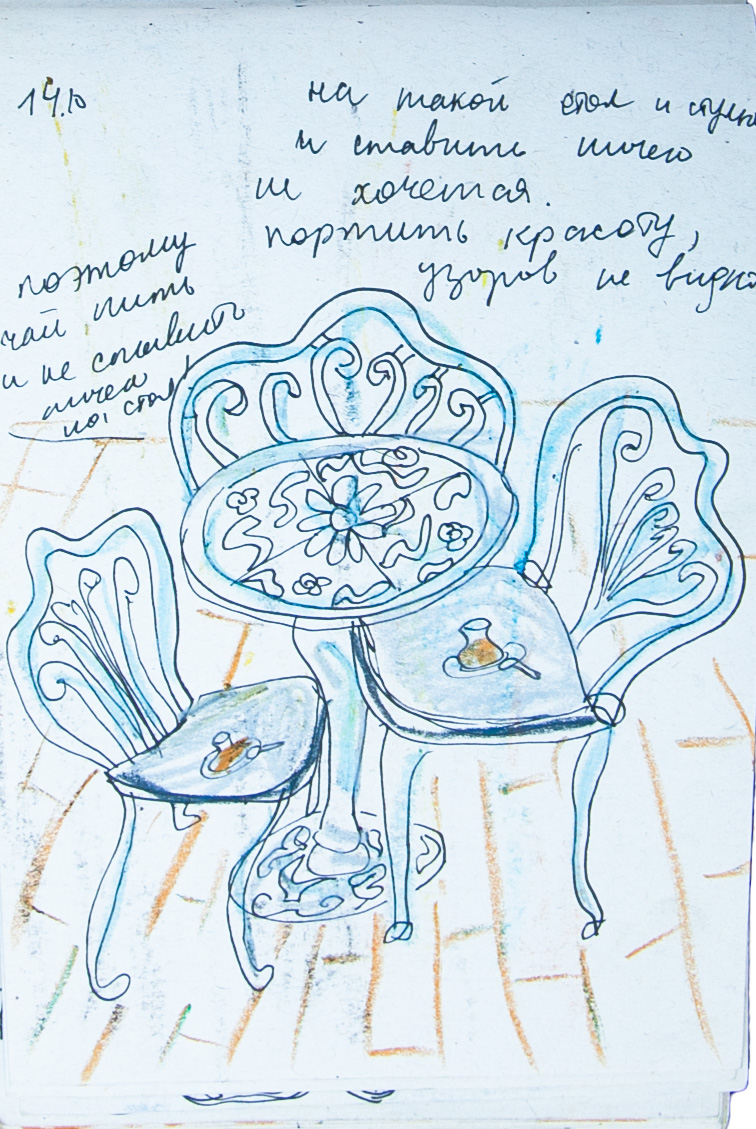 14.10
на такой стол и стулья
и ставить ничего
не хочется.
портить красоту,
узоров не видно
поэтому
чай пить
и не ставить
ничего
на стол!